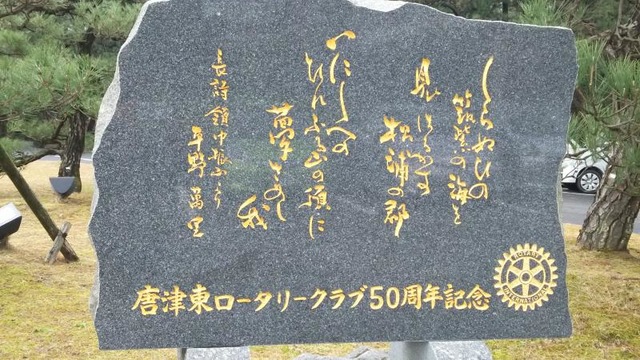 しらぬひの
筑紫の海を
見はるかす
松浦の郡
いにしへの
ひれふる山の頂に
夢さめし
我
長詩 より
平野 萬里
唐津東ロータリークラブ50周年記念
ROTARY
INTERNATIONAL